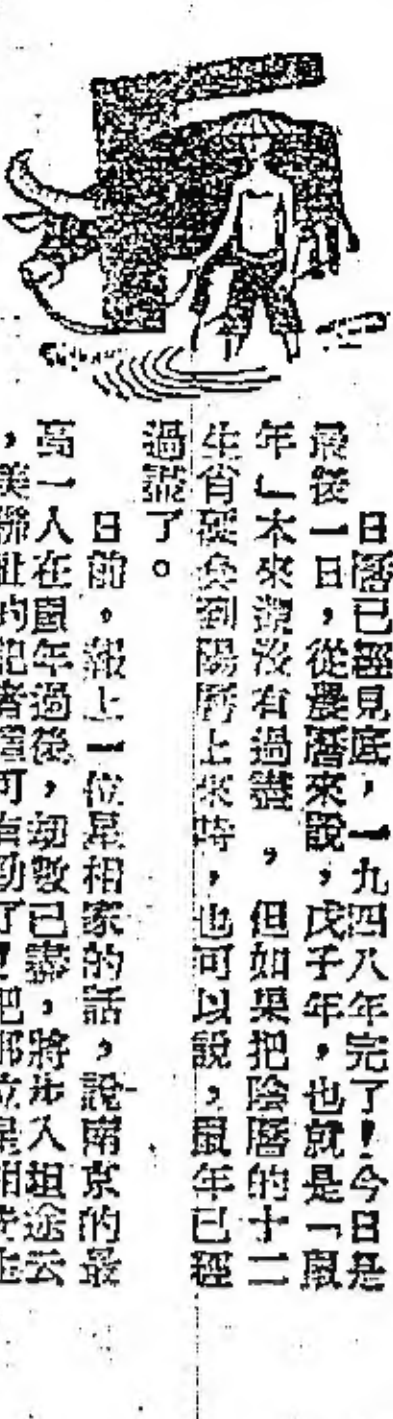 日曆已經見底，一九四八年完了！今日是
最後一日，從農曆來說，戊子年，也就是「鼠
年」本來還沒有過盡，但如果把陰曆的十二
生肖硬兌到陽曆上來時，也可以說，鼠年已經
過盡了。
日前，報上一位星相家的話，說南京的最
高一人在鼠年過後，劫數已盡，將步入坦途云